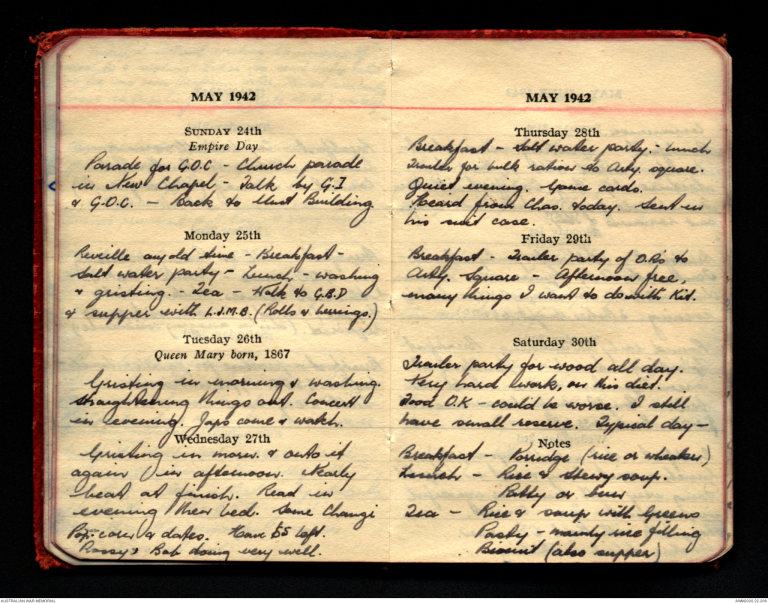 MAY 1942
SUNDAY 24th
Empire Day
Parade for G.O.C - Church parade
in New Chapel - Talk by G.I
& G.O.C. - Back to Unit Building
Monday 25th
Reveille any old time - Breakfast -
Salt water party - Lunch - washing
& gristing. - Tea - Walk to G.B.D
& supper with L.J.M.B. (Rolls & herrings.)
Tuesday 26th
Queen Mary born, 1867
Gristing in morning & washing.
Straightening things out. Concert
in evening. Japs come & watch.
Wednesday 27th
Gristing in morn. & onto it
again in afternoon. Nearly
beat at finish. Read in
evening then bed. Some Changi
Pop-corn & dates. Have $5 left.
Rossy & Bob doing very well.
MAY 1942
Thursday 28th
Breakfast - Salt water party. - Lunch
Trailer for bulk rations to Arty. square.
Quiet evening. Game cards.
Heard from Chas. today. Sent in
his suit case.
Friday 29th
Breakfast - Trailer party of O.R's to
Arty. Square - Afternoon free,
many things I want to do with Kit.
Saturday 30th
Trailer party for wood all day.
Very hard work, on this diet.
Food O.K - could be worse. I still
have small reserve. Typical day -
Notes
Breakfast - Porridge (rice or wheaten)
Lunch - Rice & Stewy soup.
or bun
Tea - Rice & soup with Greens
Pasty - mainly rice filling
Biscuit (also supper)
AUSTRALIAN WAR MEMORIAL